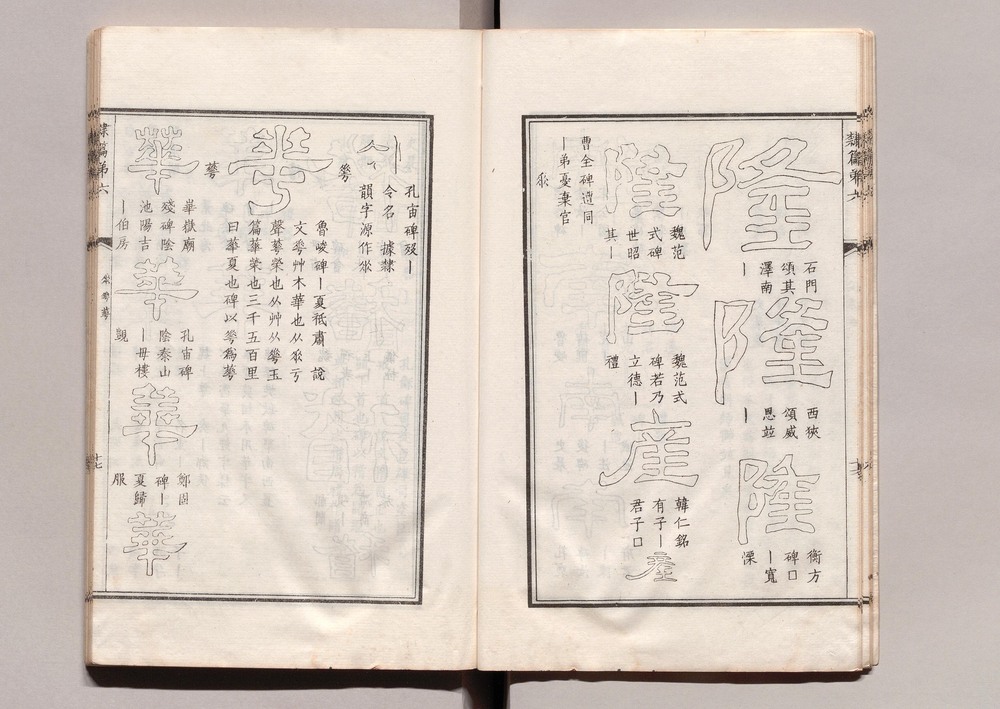 隸篇第六
隆
石門
頌其
澤南
｜
隆
西狹
頌威
恩竝
｜
隆
衡方
碑口
｜寬
慄
隆
魏范
式碑
世昭
其｜
隆
魏范式
碑若乃
立德｜
禮
產
韓仁銘
有子｜
君子口
產
曹全碑遺同
｜弟憂棄官
孔宙碑歿｜
令名　據隸
韻字源作
華
魯峻碑｜夏祗肅　說
文　艸木華也从　亏
聲　榮也从艸从　玉
篇華榮也三千五百里
曰華夏也碑以　為
華
華嶽廟
殘碑陰
池陽吉
｜伯房
華
孔宙碑
陰泰山
｜毋樓
覬
華
鄭固
碑｜
夏歸
服
華
隸篇第六
十七